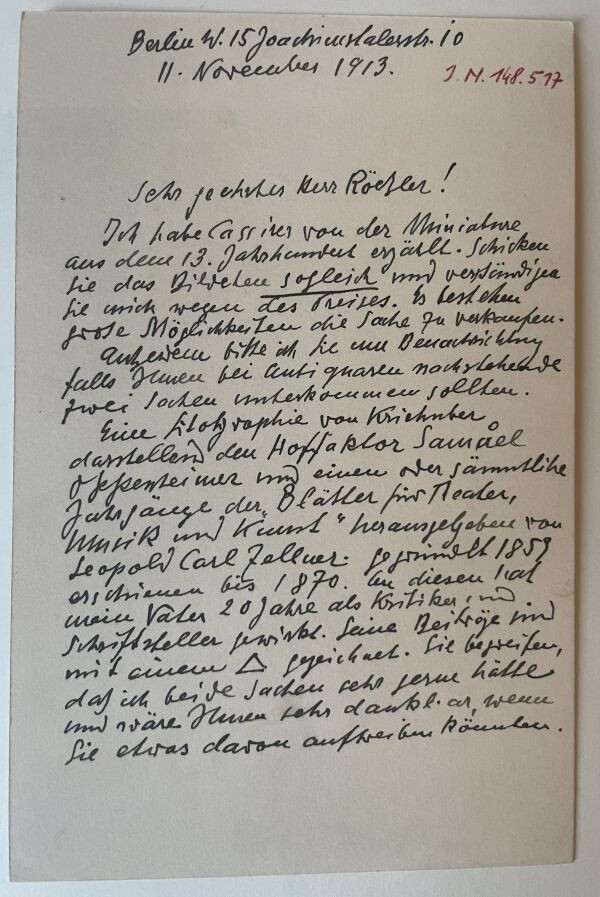 Berlin W. 15 Joachimstalerstr. 10
11. November 1913.
J. N. 148.517
Sehr geehrter Herr Rößler!
Ich habe Cassirer von der Miniature
aus dem 13. Jahrhundert erzählt. Schicken
Sie das Bildchen sogleich und verständigen
Sie mich wegen des Preises. Es bestehen
grose Möglichkeiten die Sache zu verkaufen.
Außerdem bitte ich Sie um Benachrichtung
falls Ihnen bei Antiquaren nachstehende
zwei Sachen unterkommen sollten.
Eine Litographie von Kriehuber
darstellend den Hoffaktor Samuel
Oppenheimer und einen oder sämmtliche
Jahrgänge der „Blätter für Theater,
Musik und Kunst" herausgegeben von
Leopold Carl Zellner. gegründet 1859
erschienen bis 1870. In diesen hat
mein Vater 20 Jahre als Kritiker und
Schriftsteller gewirkt. Seine Beiträge sind
mit einem △ gezeichnet. Sie begreifen,
daß ich beide Sachen sehr gerne hätte
und wäre Ihnen sehr dankbar, wenn
Sie etwas davon auftreiben könnten.